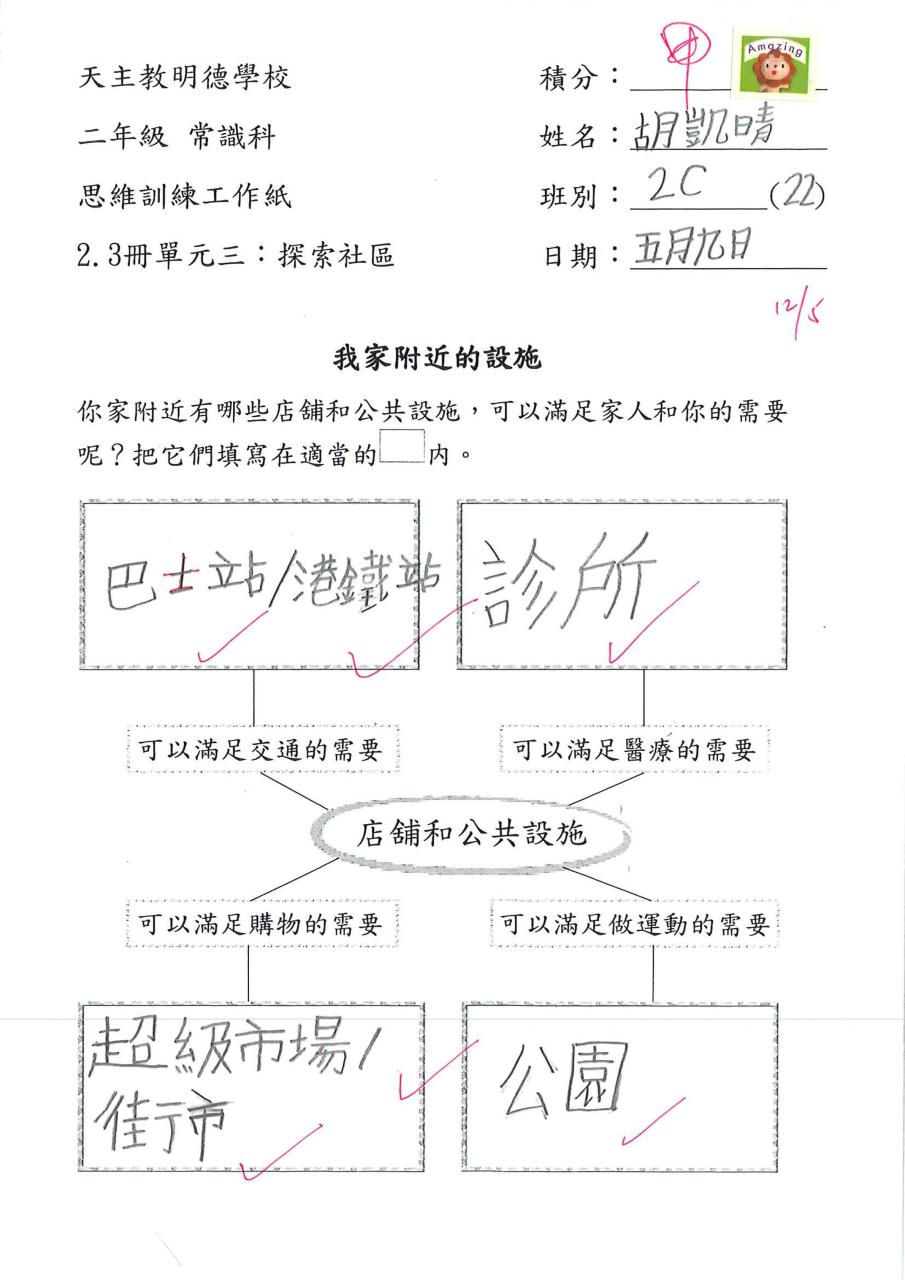 天主教明德學校
積分：甲
Amazing
二年級 常識科
姓名：胡凱晴
思維訓練工作紙
班別：2C (22)
2.3冊單元三：探索社區
日期：五月九日
12/5
我家附近的設施
你家附近有哪些店舖和公共設施，可以滿足家人和你的需要
呢？把它們填寫在適當的 內。
巴士站/港鐵站
診所
可以滿足交通的需要
可以滿足醫療的需要
店舖和公共設施
可以滿足購物的需要
可以滿足做運動的需要
超級市場/
街市
公園